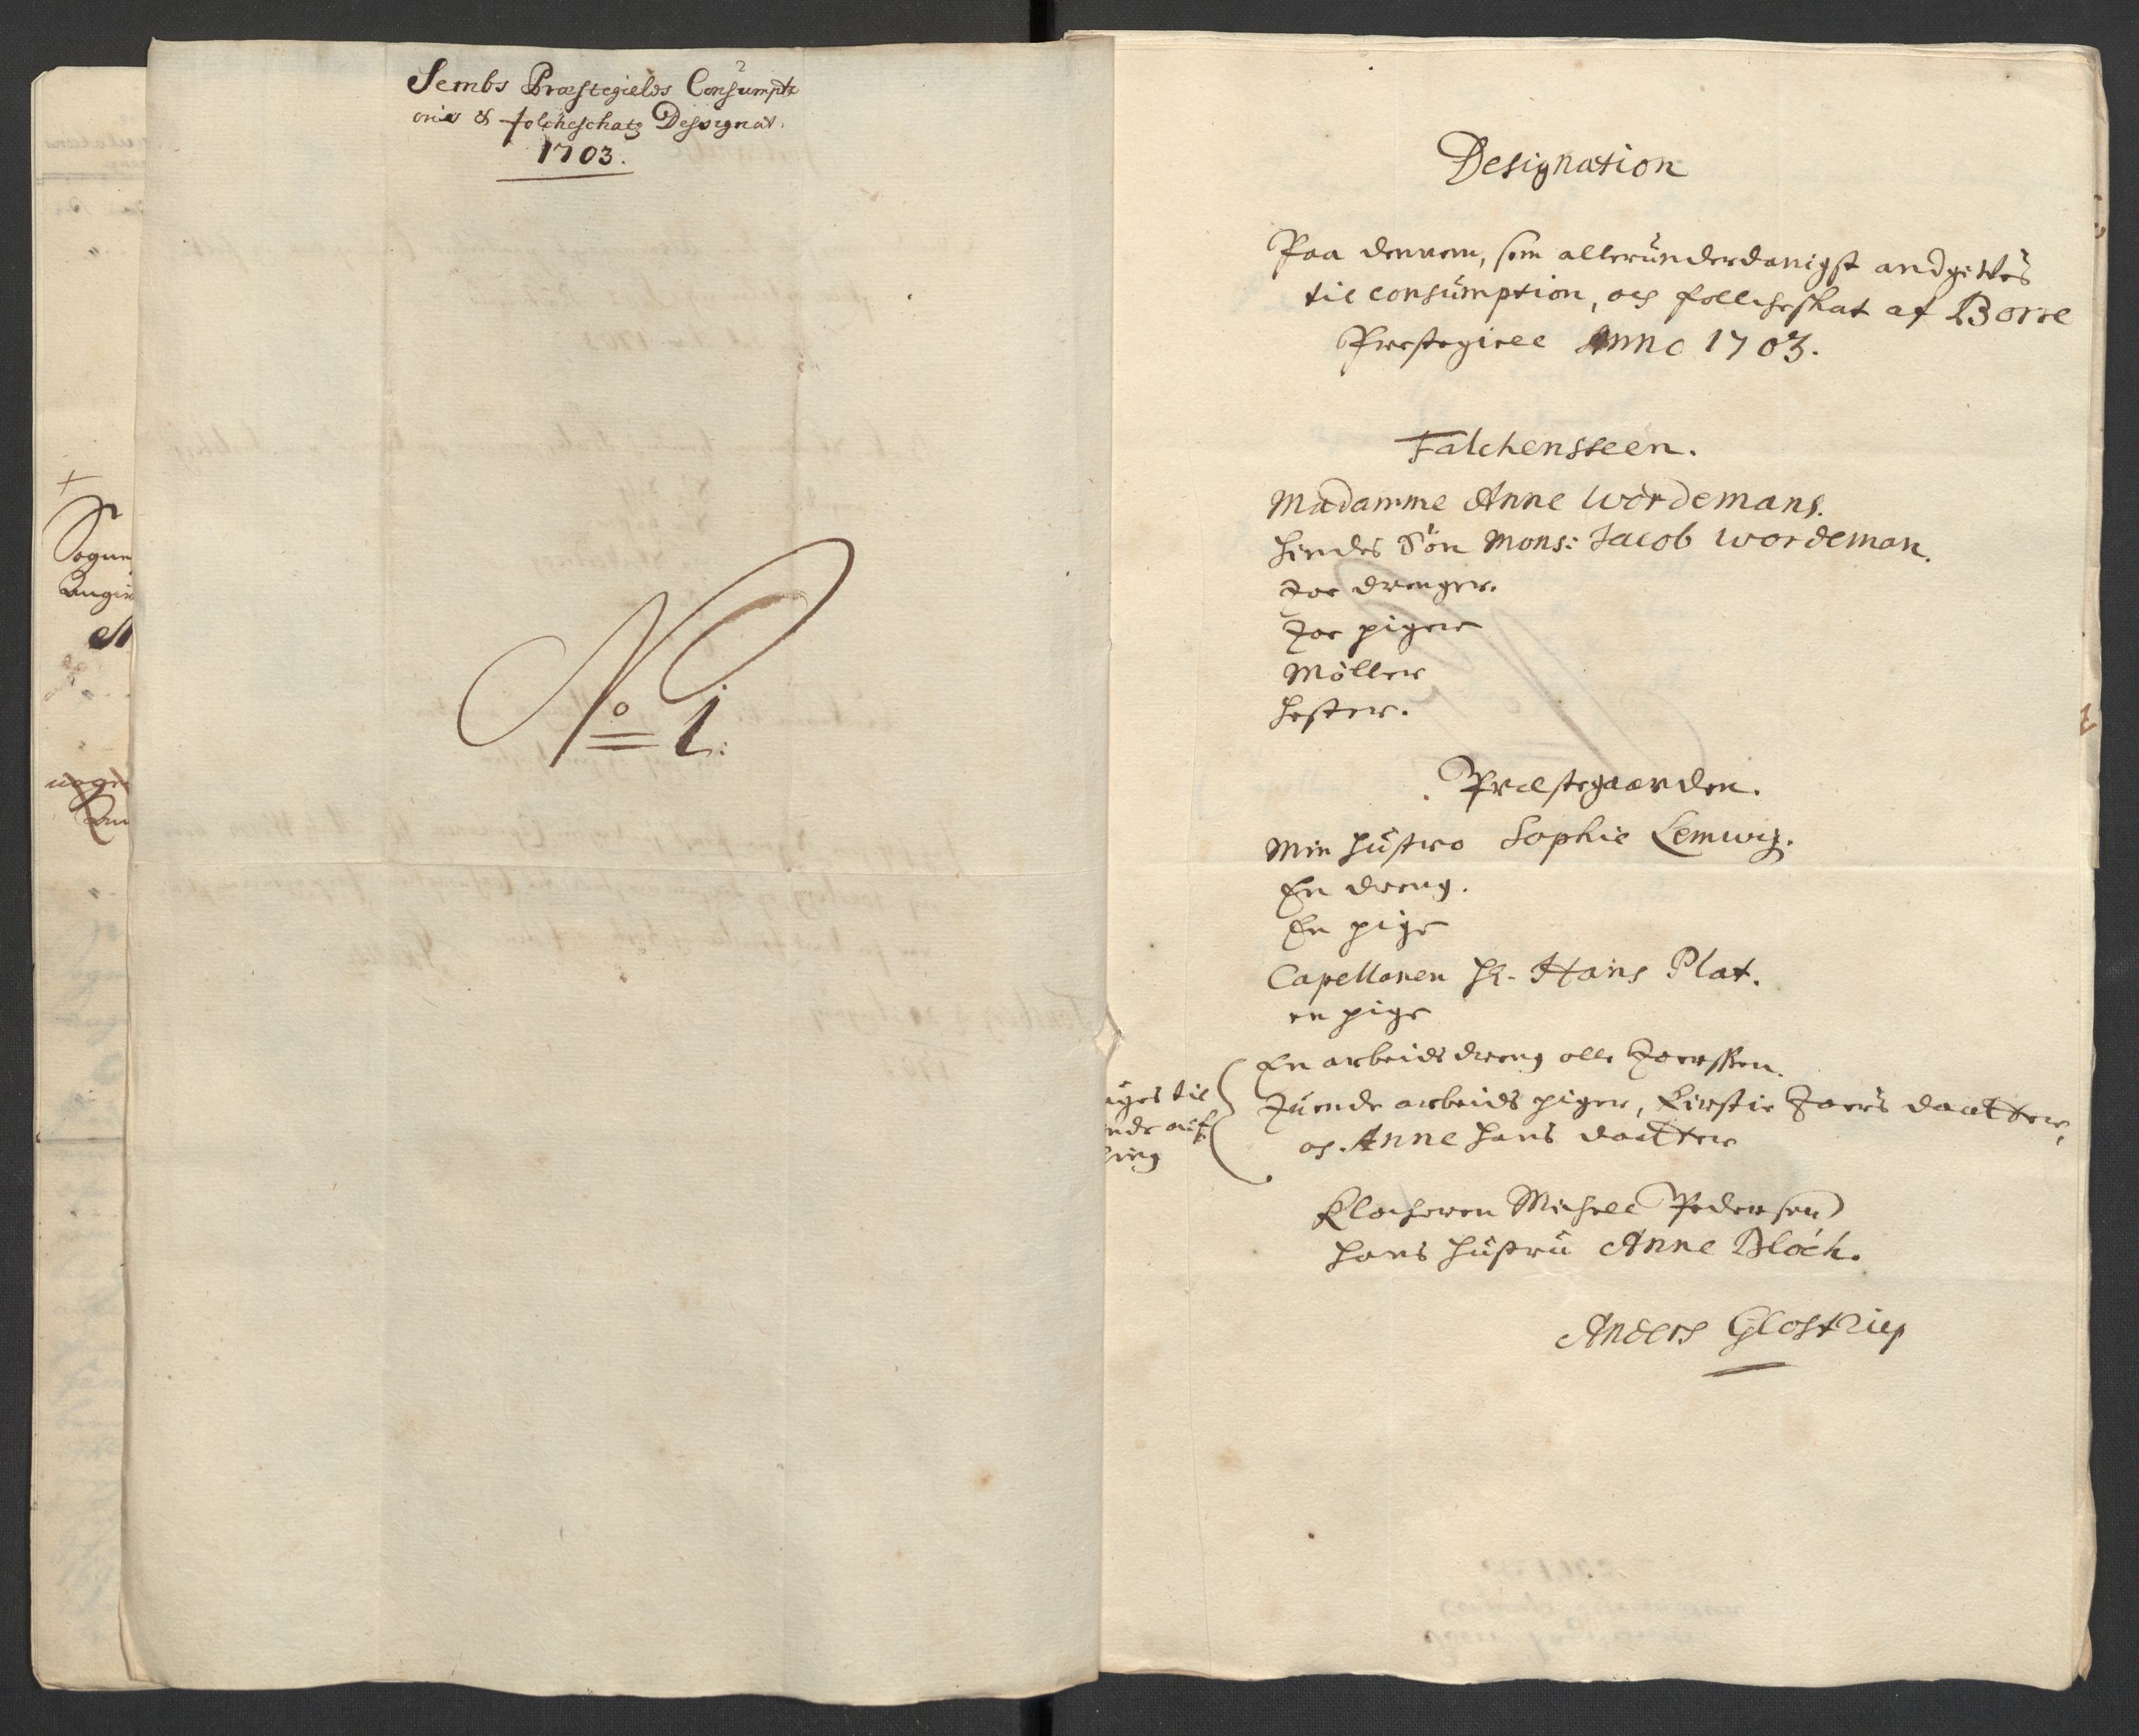 Sembs Præstegields Consumpti
onis & folcheschatz Designat.
1703.
No 1:
Designation
Paa dennem, som allerunderdanigst andgifves
til consumption, och follcheskat af Borre
Prestegiell Anno 1703.
Falchensteen.
Madamme Anne Wordemans.
hindes Søn Mons: Jacob Wordeman.
Toe drenger.
Toe piger
Møller
hester.
Præstegaarden.
Min hustro Sophie Lemwig.
En dreng.
En pige
Capellanen Hr. Hans Plat.
en pige
En arbeids dreng olle Joenssen.
Tuende arbeids piger, Kirstie Joens daatter,
og Anne Hans daatter
Klocheren Michell Pedersen
Hans hustru Anne Bloch.
Anders Glostrup